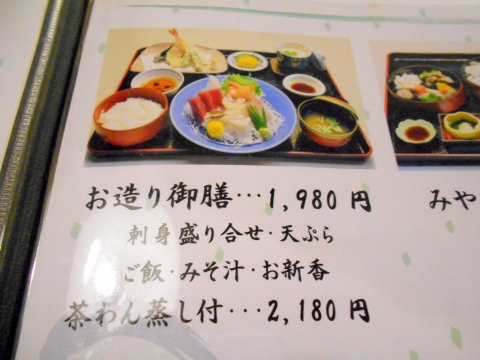 お造り御膳…1,980円
みや
刺身盛り合せ・天ぷら
ご飯・みそ汁・お新香
茶わん蒸し付…2,180円